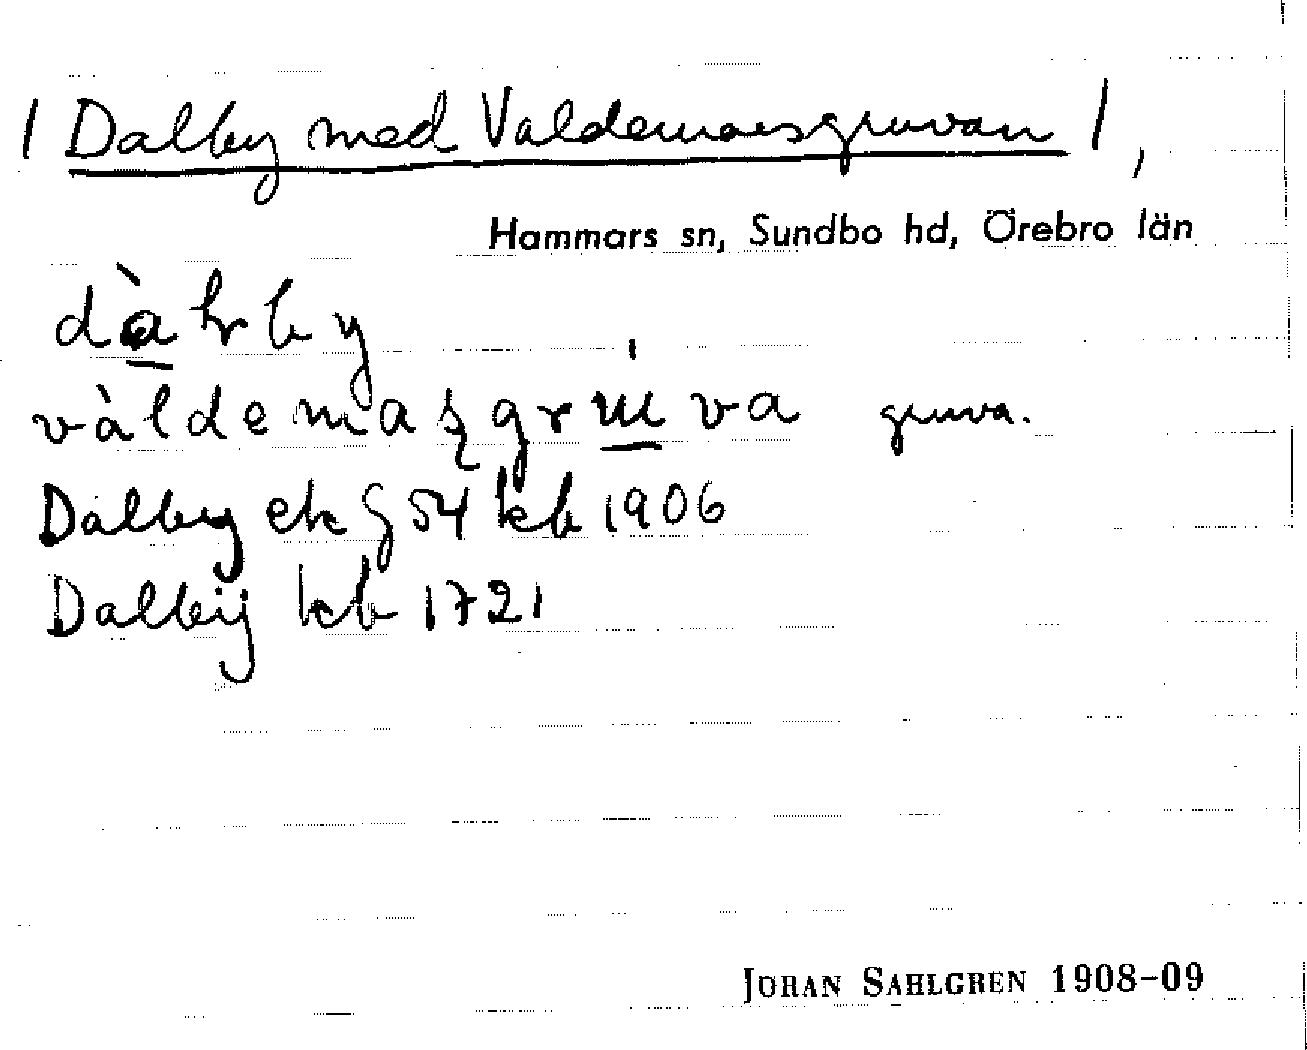 | Dalby med Valdemarsgruvan |,
Hammars sn, Sundbo hd, Örebro län
gruva.
Dalby ek § 54 kb 1906
Dalbÿ kb 1721
JÖRAN SAHLGREN 1908-09